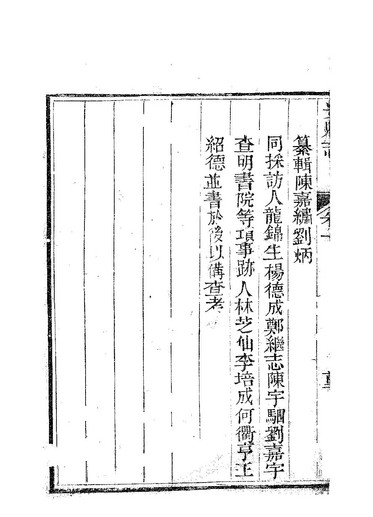 縣志
纂輯陳嘉纘劉炳
同採訪人龍錦生楊德成鄭繼志陳宇駰劉嘉宇
查明書院等項事跡人林芝仙李培成何衢亨王
紹德並書於後以備查考